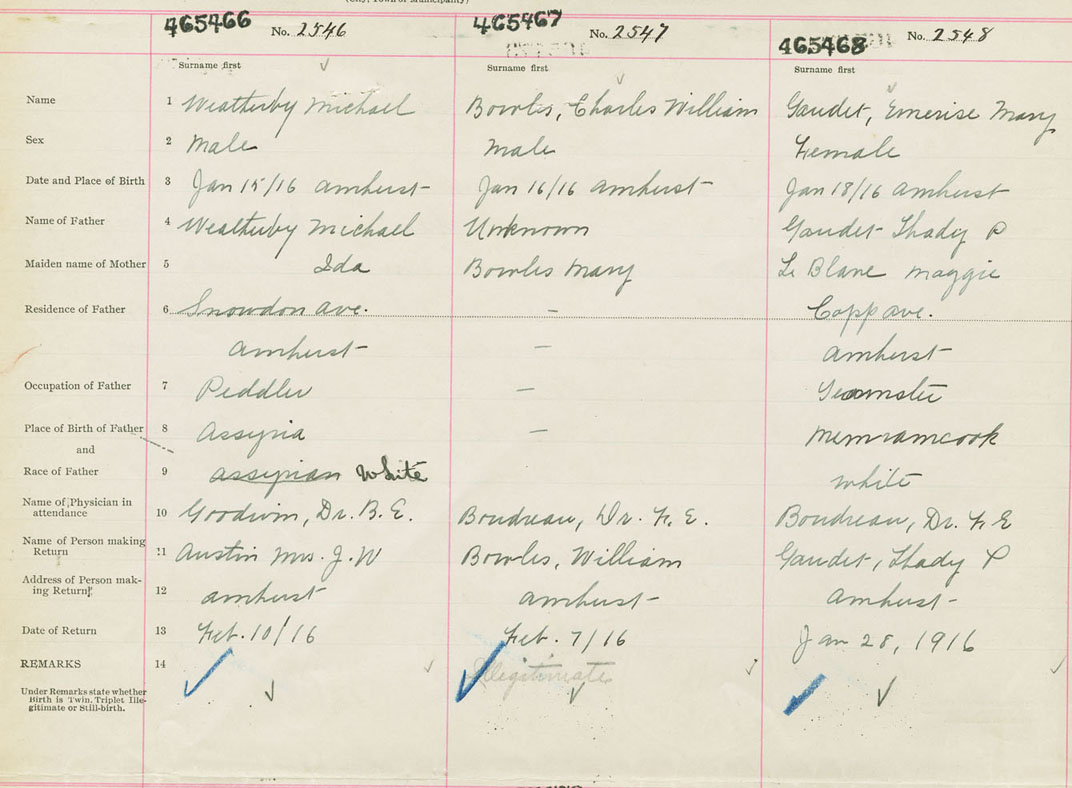 (City, Town or Municipality)
465466 No. 2546 465467 No. 2547 465468 No. 2548
Surname first Surname first Surname first
Name 1 Weatherby Michael Bowles, Charles William Gaudet, Emerise Mary
Sex 2 Male Male Female
Date and Place of Birth 3 Jan 15/16 Amherst Jan 16/16 Amherst Jan 18/16 Amherst
Name of Father 4 Weatherby Michael Unknown Gaudet Thady P
Maiden name of Mother 5 Ida Bowles Mary Le Blanc Maggie
Residence of Father 6 Snowdon Ave. — Copp ave.
Amherst — Amherst
Occupation of Father 7 Peddler — Teamster
Place of Birth of Father 8 Assyria — Memramcook
and
Race of Father 9 Assyrian White White
Name of Physician in
attendance 10 Goodwin, Dr. B. E. Boudreau, Dr. F. E. Boudreau, Dr. F E
Name of Person making
Return 11 Austin Mrs. J. W Bowles, William Gaudet, Thady P
Address of Person mak-
ing Return 12 Amherst Amherst Amherst
Date of Return 13 Feb. 10/16 Feb. 7/16 Jan 28, 1916
REMARKS 14 Illegitimate
Under Remarks state whether
Birth is Twin, Triplet Ille-
gitimate or Still-birth.